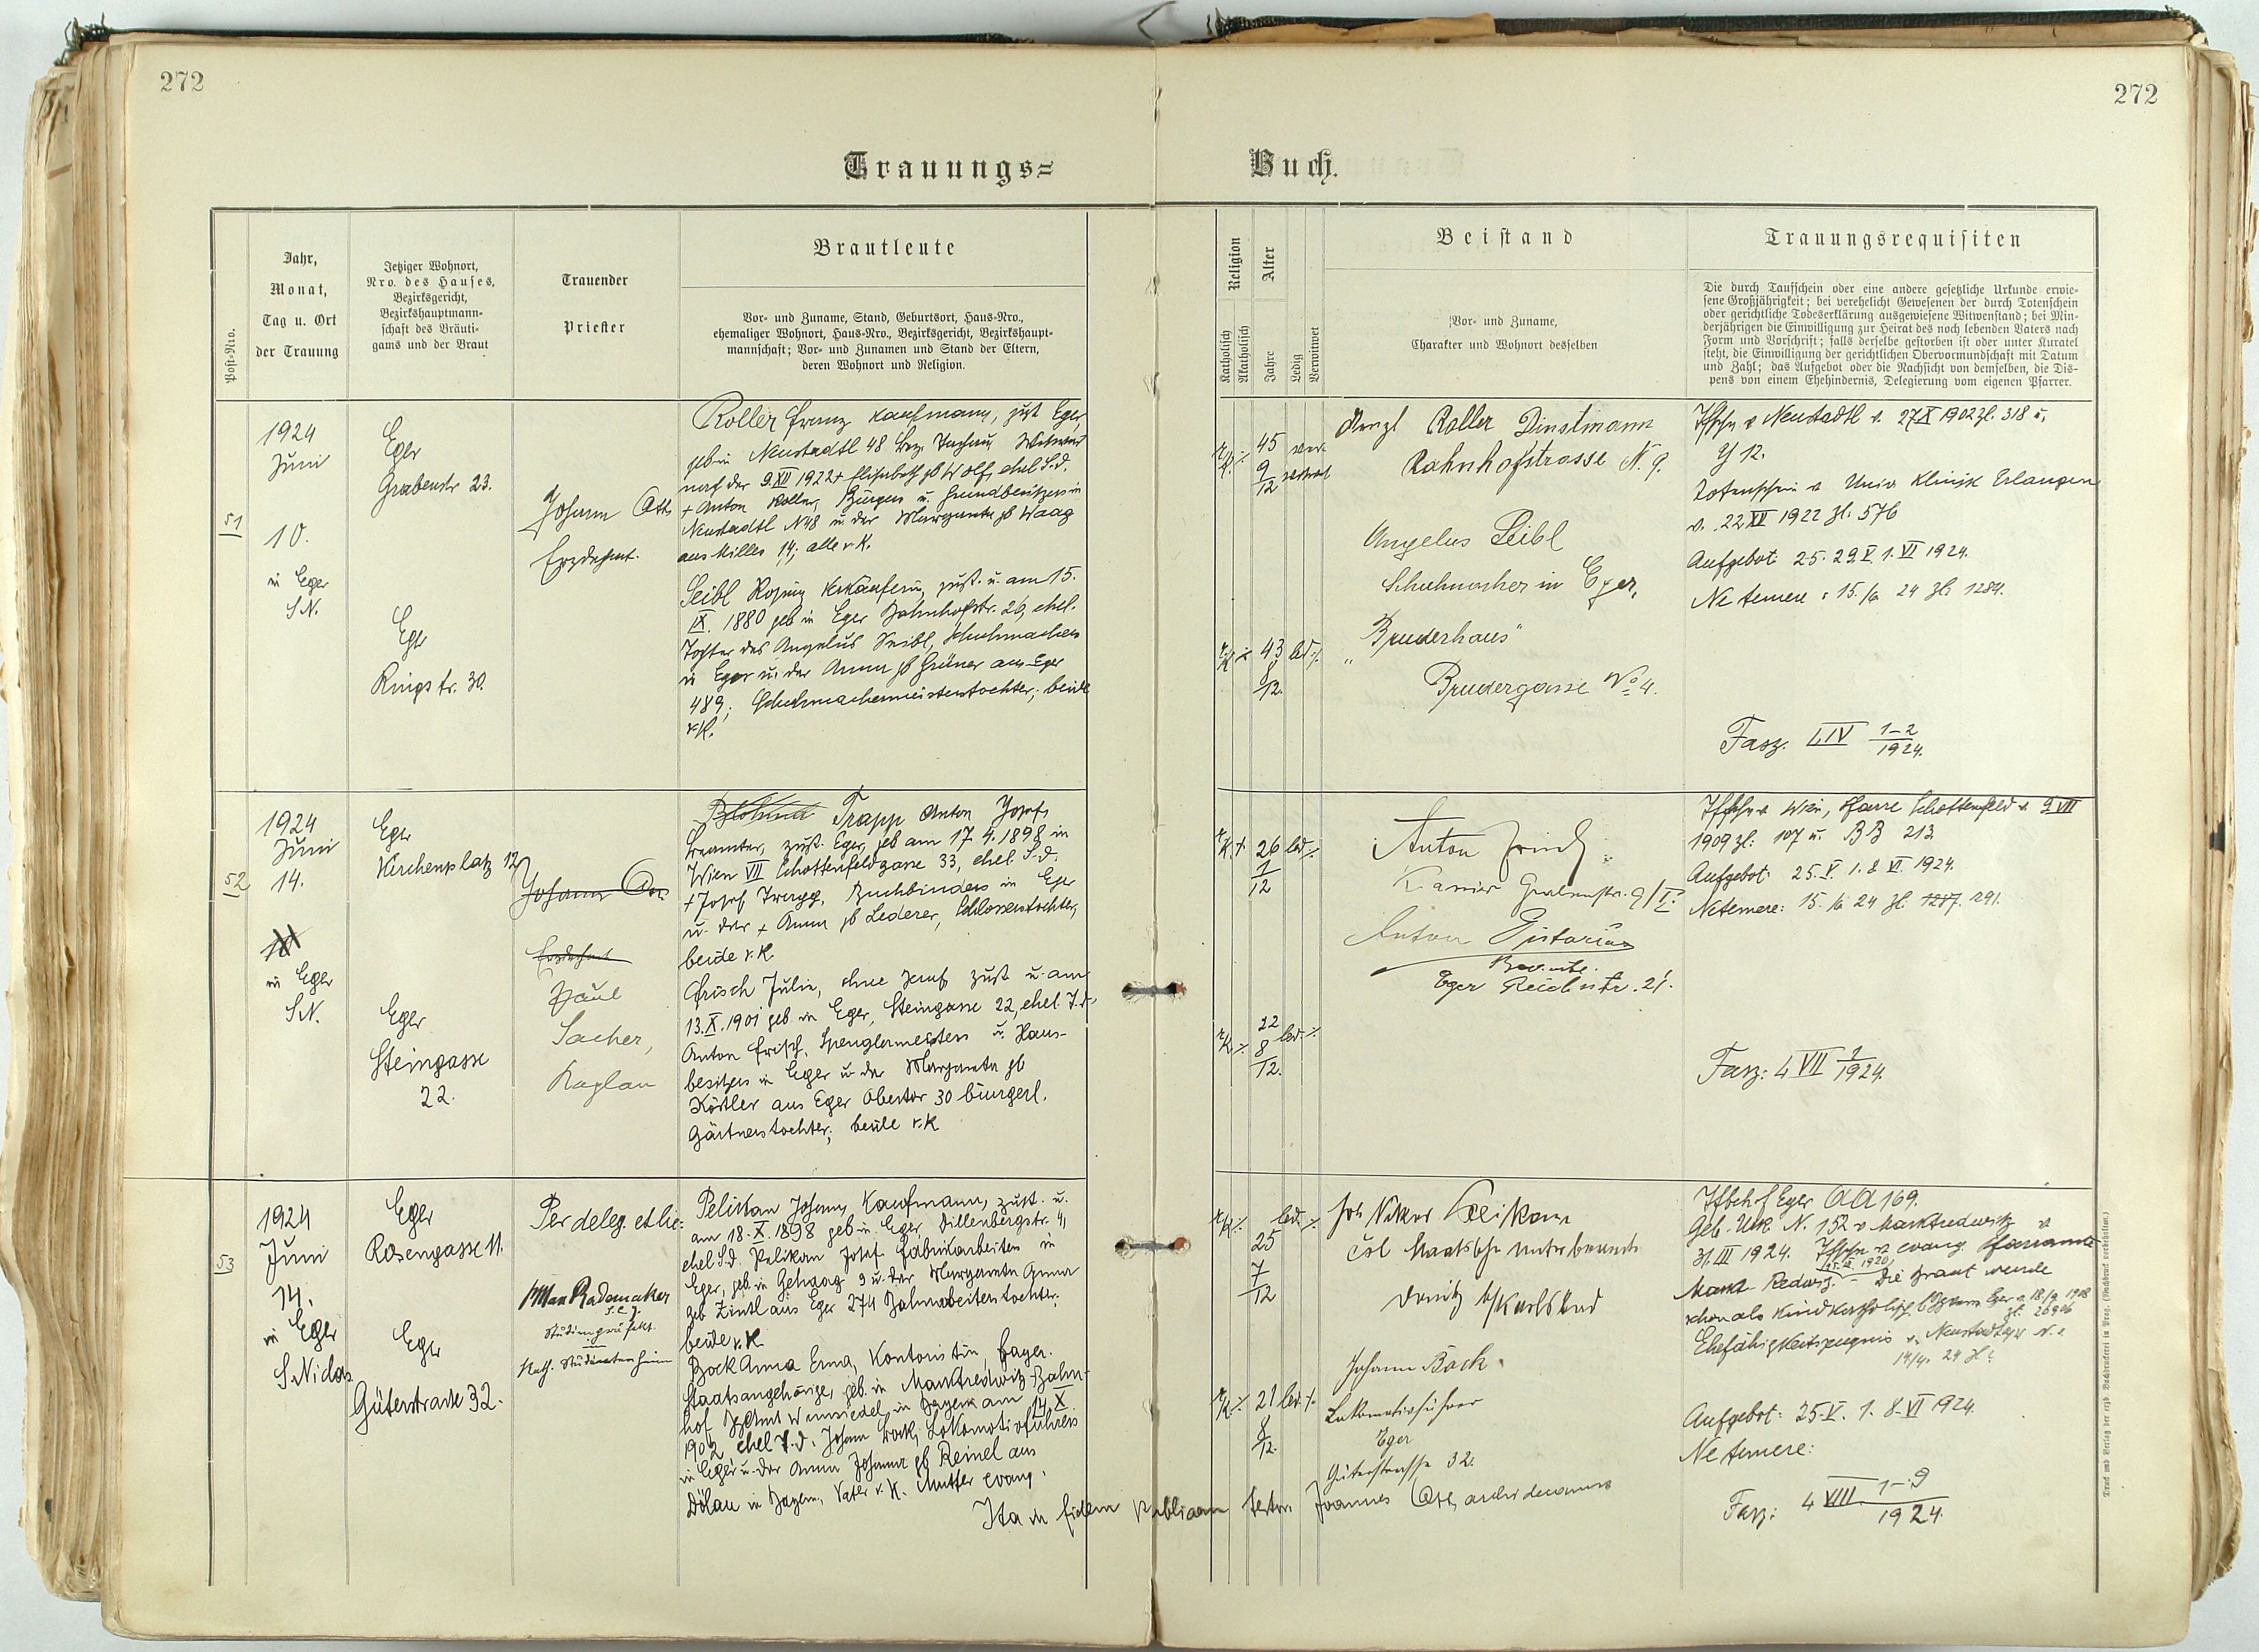 272
272
Trauungs=
Buch.
Post-Nro.
Jahr,
Monat,
Tag u. Ort
der Trauung
Jetziger Wohnort,
Nro. des Hauses,
Bezirksgericht,
Bezirkshauptmann-
schaft des Bräuti-
gams und der Braut
Trauender
Priester
Brautleute
Vor- und Zuname, Stand, Geburtsort, Haus-Nro.,
ehemaliger Wohnort, Haus-Nro., Bezirksgericht, Bezirkshaupt-
mannschaft; Vor- und Zunamen und Stand der Eltern,
deren Wohnort und Religion.
Religion
Katholisch
Akatholisch
Alter
Jahre
Ledig
Verwitwet
Beistand
Vor- und Zuname,
Charakter und Wohnort desselben
Trauungsrequisiten
Die durch Taufschein oder eine andere gesetzliche Urkunde erwie-
sene Großjährigkeit; bei verehelicht Gewesenen der durch Totenschein
oder gerichtliche Todeserklärung ausgewiesene Witwenstand; bei Min-
derjährigen die Einwilligung zur Heirat des noch lebenden Vaters nach
Form und Vorschrift; falls derselbe gestorben ist oder unter Kuratel
steht, die Einwilligung der gerichtlichen Obervormundschaft mit Datum
und Zahl; das Aufgebot oder die Nachsicht von demselben, die Dis-
pens von einem Ehehindernis, Delegierung vom eigenen Pfarrer.
51
1924
Juni
10.
in Eger
S.N.
Eger
Grabenstr 23.
Eger
Ringstr. 30.
Johann Ott
Erzdechant.
Roller Franz Kaufmann, zust Eger,
geb in Neustadtl 48 Bez. Tachau, Witwer
nach der 9 XII 1922 + Elisabeth gb Wolf, ehel S.d.
+ Anton Roller, Bürgers u. Grundbesitzers in
Neustadtl N 48 u. der Margareta gb Waag
aus Milles 14; alle r. K.
Seibl Rosina Verkäuferin, zust. u. am 15.
IX. 1880 geb in Eger Bahnhofstr. 26, ehel.
Tochter des Angelus Seibl, Schuhmachers
in Eger u. der Anna gb Grüner aus Eger
489; Schuhmachermeisterstochter; beide
r. K.
45
9
12
43 led.
8
12.
Wenzl Roller Dinstmann
Bahnhofstrasse N. 9.
Angelus Seibl
Schuhmacher in Eger,
"Bruderhaus"
Brudergasse No 4.
Tfschn v Neustadtl v. 27 X 1902 zl. 318 u.
Y 12.
Totenschein v Univ Klinik Erlangen
v. 22 XII 1922 zl. 576
Aufgebot: 25. 29. V. 1. VI 1924.
Ne temere: 15. /6 24 zl. 1284.
Fasz. I, IV 1-2
1924.
52
1924
Juni
14.
in Eger
S.N.
Eger
Kirchenplatz 12
Eger
Steingasse
22.
Johann Ott
Erzdechant
Paul
Sacher,
Kaplan
Trapp Anton Josef,
Beamter, zust. Eger, geb am 17. 4. 1898 in
Wien VII Schottenfeldgasse 33, ehel. S. d.
+ Josef Trapp, Buchbinders in Eger
u. der + Anna gb Lederer, Schlosserstochter,
beide r. K
Frisch Julie, ohne Beruf zust u. am
13. X. 1901 geb in Eger, Steingasse 22, ehel. T. d.
Anton Frisch, Spenglermeisters u. Haus-
besitzers in Eger u. der Margareta gb
Köstler aus Eger Obertor 30 bürgerl.
Gärtnerstochter; beide r. K
26 led.
1
12
22 led.
8
12.
Anton Frisch
Kassier Grabenstr. 9/I.
Anton Pistorius
Beamte.
Eger Reichsstr. 21.
Tfschn v Wien, Pfarre Schottenfeld v. 9 VIII
1909 zl. 107 u. BB 213
Aufgebot 25. V. 1. 8 VI 1924.
Ne temere: 15. /6 24 zl. 1287. 1291.
Fasz: 4 VII 1
1924.
53
1924
Juni
14.
in Eger
S. Niclas
Eger
Rosengasse 11.
Eger
Güterstrasse 32.
Per deleg. et lic:
Max Rademaker
S. J.
Studienpräfekt
im
Kath. Studentenheim
Pelikan Johann, Kaufmann, zust. u.
am 18. X. 1898 geb in Eger, Dillenbergstr. 4,
ehel S.d. Pelikan Josef Fabrikarbeiter in
Eger, geb. in Gehaag 9 u. der Margareta Anna
geb Zintl aus Eger 274 Bahnarbeiterstochter;
beide r. K
Bock Anna Erna, Kontoristin, bayer.
Staatsangehörige, geb. in Marktredwitz-Bahn-
hof Bzamt Wunsiedel in Bayern am 14. X.
1902, ehel T. d. Johann Bock, Lokomotivführers
in Eger u. der Anna Johanna gb Reinel aus
Dölau in Bayern, Vater r. K. Mutter evang.
led.
25
7
12
21 led.
8
12.
Joh Pelikan
čsl Staatsbahn Unterbeamte
Donitz b/Karlsbad
Johann Bock.
Lokomotivführer
Eger
Güterstrasse 32.
Tfbch of Eger AA 169.
Geb. Urk N. 152 v Marktredwitz v
31. III 1924. Tfschn v evang. Pfarramte
Markt-Redwitz - Die Braut wurde
schon als Kind katholisch
Ehefähigkeitszeugnis v.
14/4. 24 zl.
Aufgebot: 25. V. 1. 8. VI 1924.
Ne temere:
Fasz: 4 VIII. 1-9
1924.
Ita in fidem publicam testor Joannes Ott, archidecanus
Druck und Verlag der erzb. Buchdruckerei in Prag. (Nachdruck vorbehalten.)